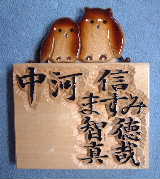 中河 信
ますみ
智徳
真哉